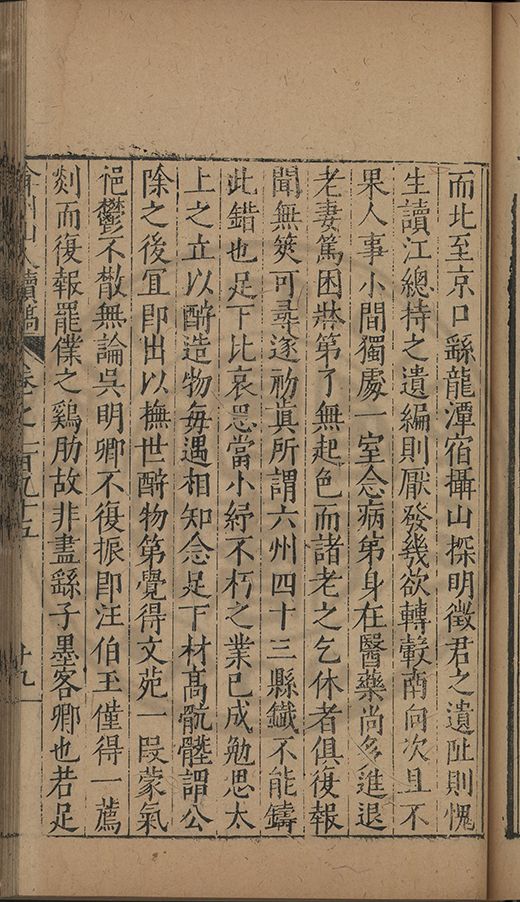 而北至京口繇龍潭宿攝山探明徵君之遺阯則愧
生讀江總持之遺編則厭發幾欲轉轂南向次且不
果人事小間獨處一室念病第身在醫藥尚多進退
老妻篤困牀第了無起色而諸老之乞休者俱復報
聞無筴可尋遂礽眞所謂六州四十三縣鐵不能鑄
此錯也足下比哀思當小紓不朽之業已成勉思太
上之立以酧造物每遇相知念足下材高骯髒謂公
除之後冝即出以撫世酧物第覺得文苑一叚蒙氣
悒鬱不散無論吳明卿不復振即汪伯玉僅得一薦
剡而復報罷僕之鷄肋故非盡繇子墨客卿也若足
弇州山人續稿 卷之一百九十五 廿九